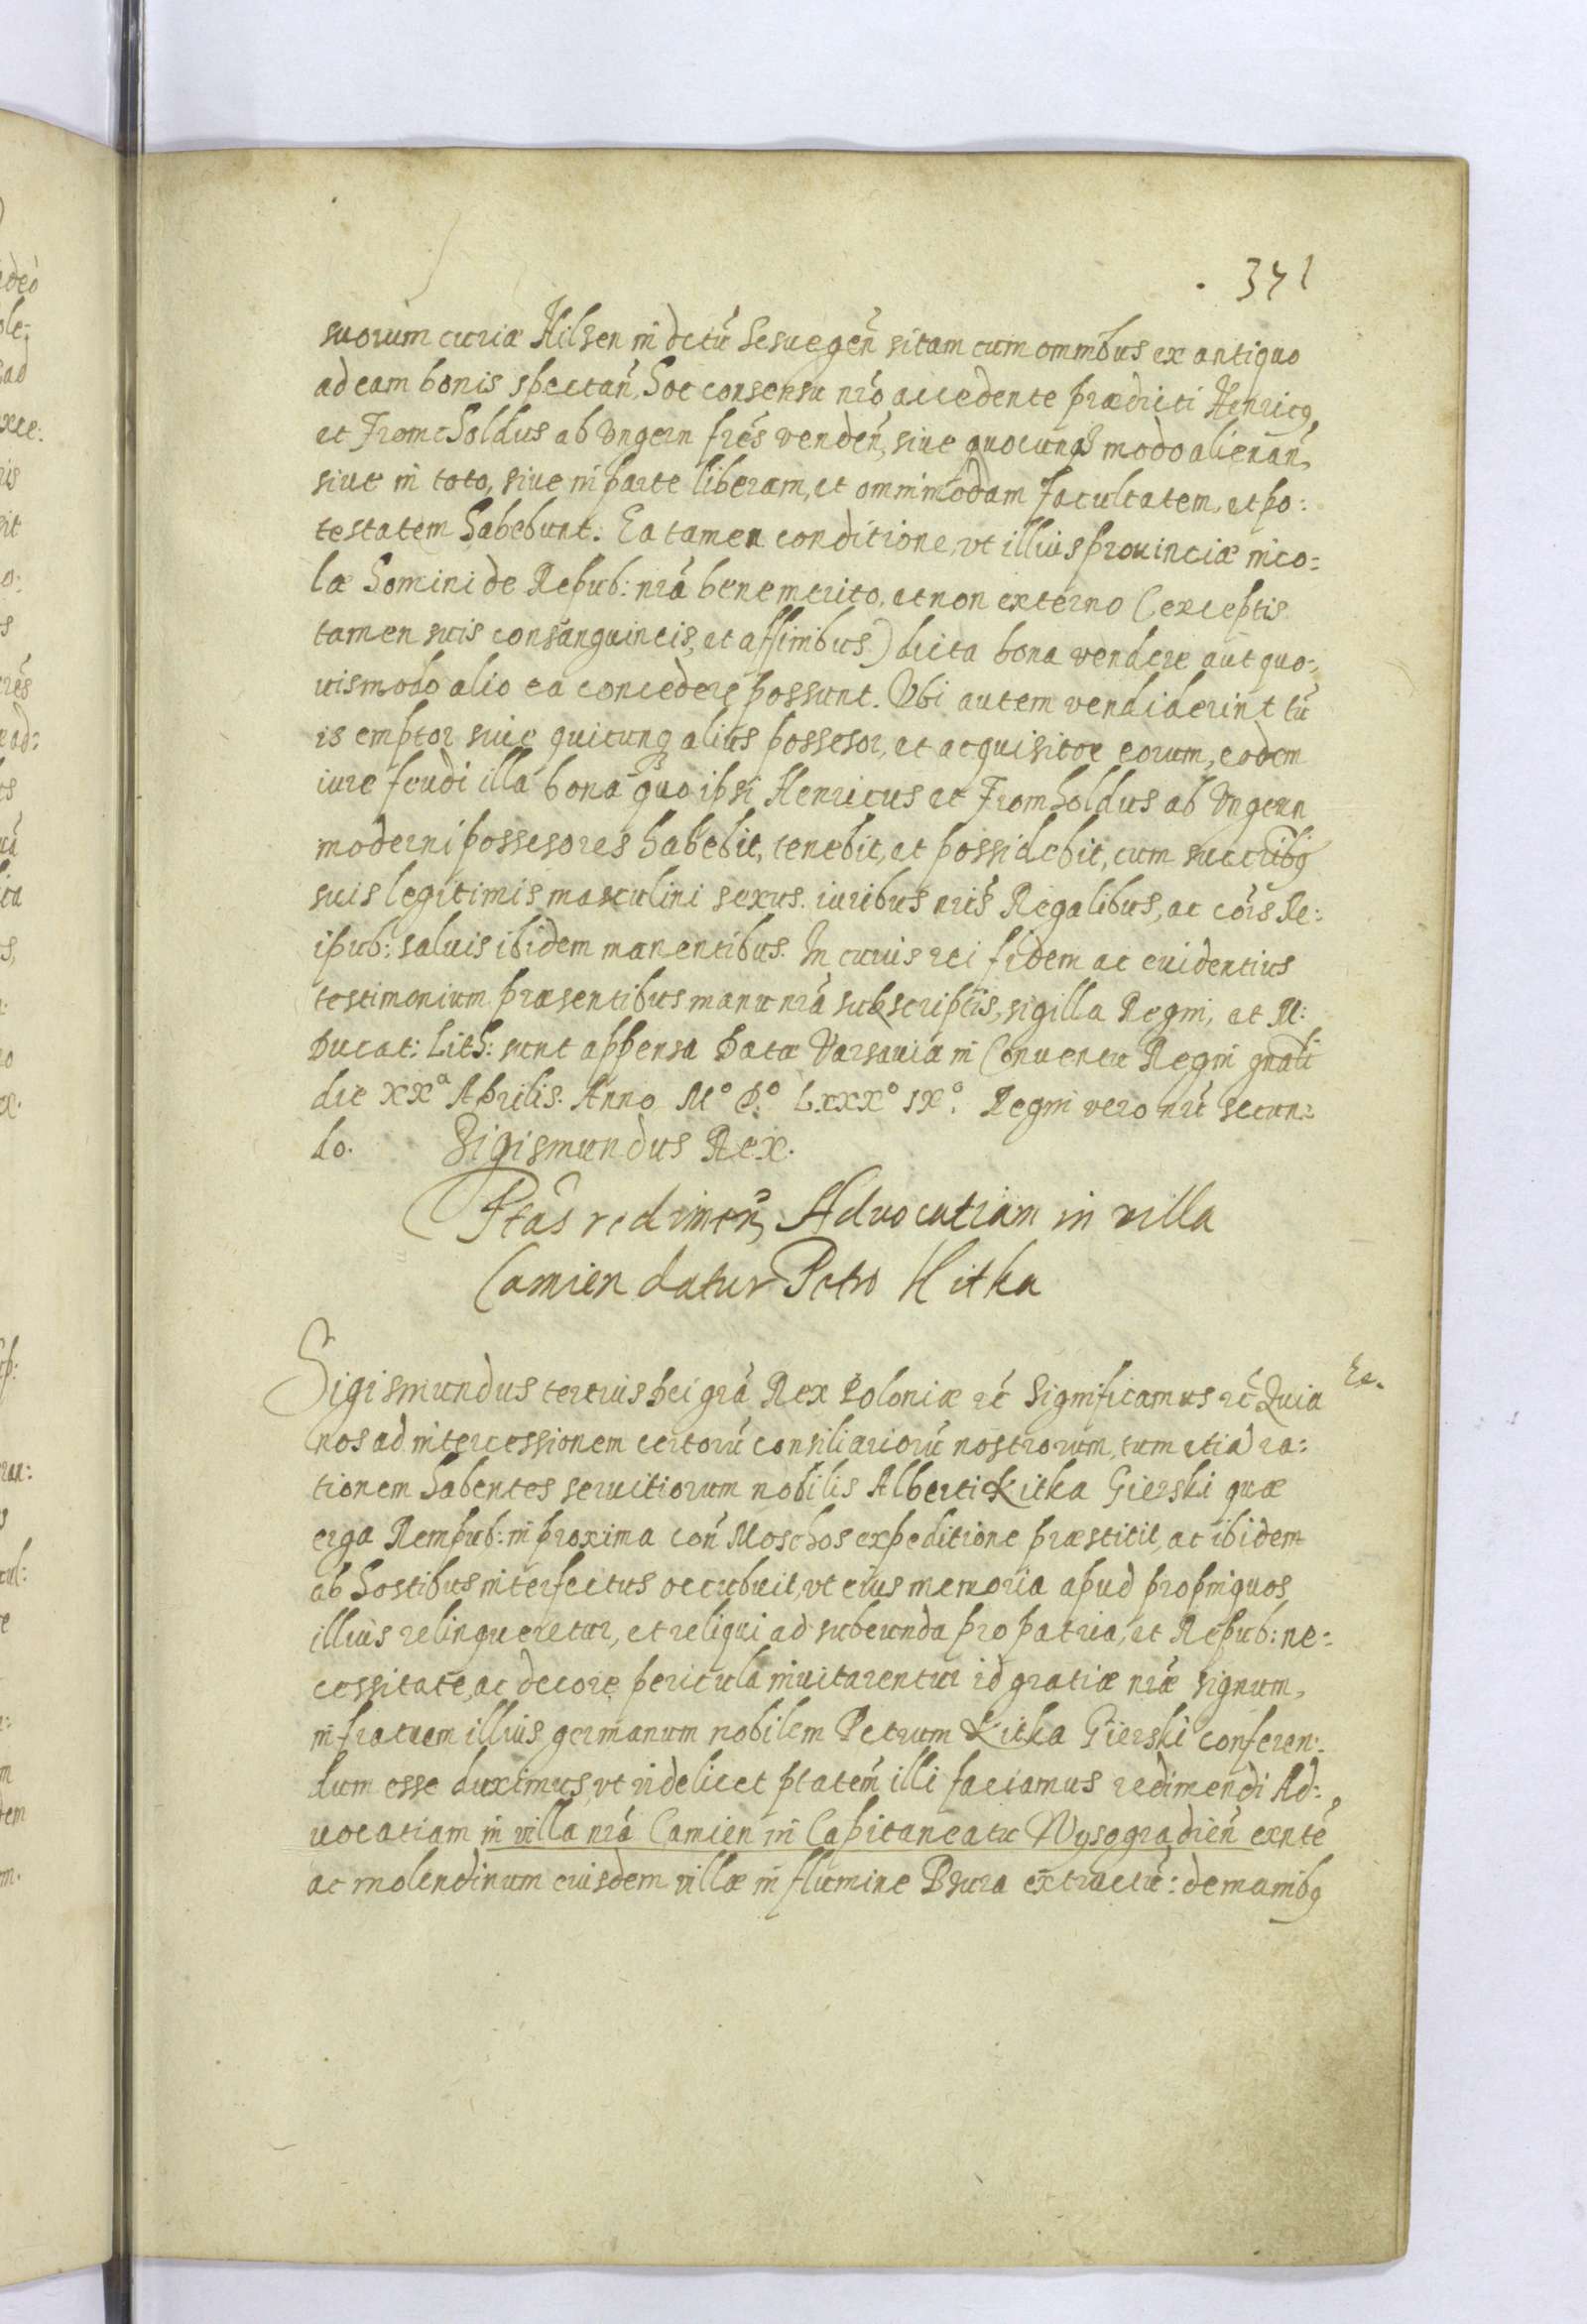 341
suorum curiæ Hilsen in dctu Sesuegen̄ sitam cum omnibus ex antiquo
ad eam bonis spectan̄, hoc consensu nr̄o accedente prædicti Henricꝰ,
et Fromholdus ab Vngern frēs venden̄, siue quocunqꝫ modo alienan̄,
siue in toto, siue in parte liberam, et omnimodam facultatem, et po:
testatem habebunt. Ea tamen conditione, vt illius prouinciæ inco:
læ homini de Repub: nr̄a benemerito, et non externo (exceptis
tamen suis consanguineis, et affinibus) dicta bona vendere aut quo:
uismodo alio ea concedere possunt. Vbi autem vendiderint tū
is emptor siue quicunqꝫ alius possesor, et acquisitor eorum, eodem
iure feudi illa bona quo ipsi Henricus et Fromholdus ab Vngern
moderni possesores habebit, tenebit, et possidebit, cum succribꝰ
suis legitimis masculini sexus. iuribus nr̄is Regalibus, ac cōis Re:
ipub: saluis ibidem manentibus. In cuius rei fidem ac euidentius
testimonium præsentibus manu nr̄a subscriptis, sigilla Regni, et M:
Ducat: Lith: sunt appensa Datæ Varsauiæ in Conuentu Regni gnali
die XXª Aprilis. Anno Mº Dº LXXXº IXº. Regni vero nr̄i secun:
do. Sigismundus Rex.
Ptās redimen̄ Advocatiam in villa
Camien datur Petro Kitka
Sigismundus tertius Dei gr̄a Rex Poloniæ ec̄ Significamus ec̄ Quia
nos ad intercessionem certorū consiliariorū nostrorum, tum etiā ra:
tionem habentes seruitiorum nobilis Alberti Kitka Gierski quæ
erga Rempub: in proxima con̄ Moschos expeditione præstitit, ac ibidem
ab hostibus interfectus occubuit, vt eius memoria apud propinquos
illius relinqueretur, et reliqui ad subeunda pro patria, et Repub: ne:
cessitate, ac decore pericula inuitarentur id gratiæ nr̄æ signum,
in fratrem illius germanum nobilem Petrum Kitka Gierski conferen:
dum esse duximus, vt videlicet ptatem̄ illi faciamus redimendi Ad:
uocatiam in villa nr̄a Camien in Capitaneatu Wysogradien̄ exntē
ac molendinum eiusdem villæ in flumine Bsura extractū: de manibꝰ